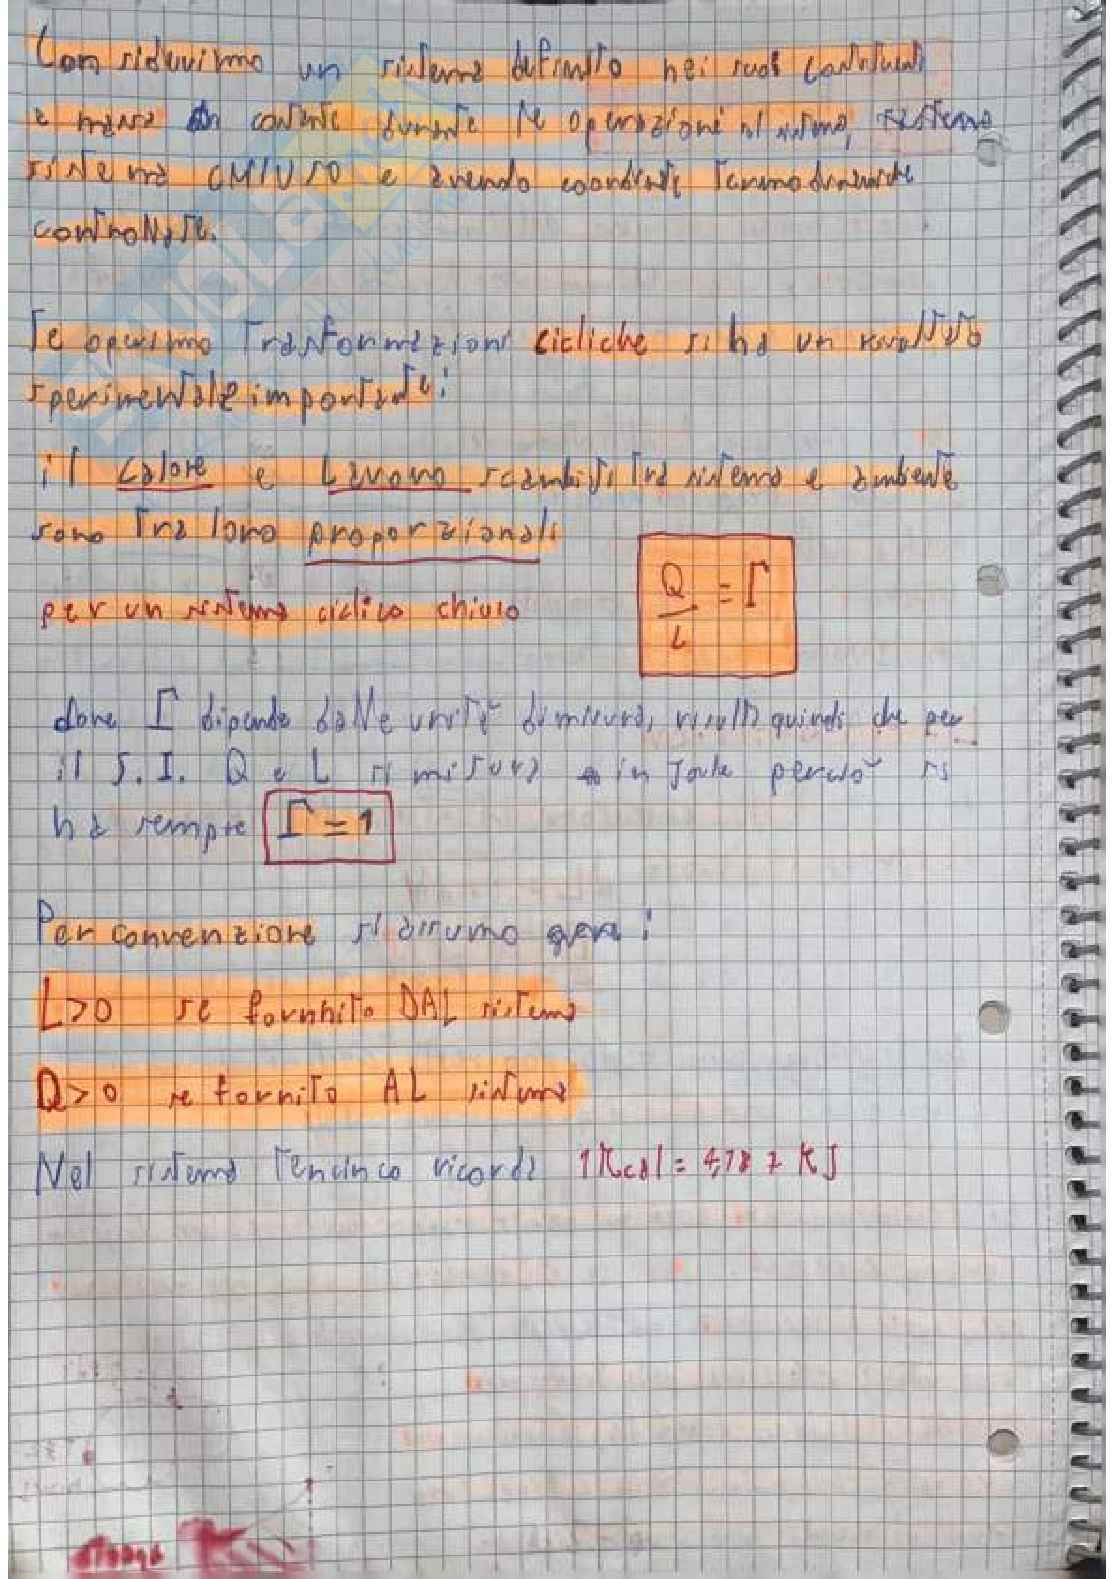 Consideriamo un sistema definito nei suoi confini
e massa costante durante le operazioni il sistema, sistema
sistema CHIUSO e avendo coordinate Termodinamiche
controllate.
Se operiamo Trasformazioni cicliche si ha un risultato
sperimentale importante:
il calore e Lavoro scambiati Tra sistema e ambiente
sono Tra loro proporzionali
per un sistema ciclico chiuso
Q/L = Γ
dove Γ dipende dalle unità di misura, risulta quindi che per
il S.I. Q e L si misura in Joule perciò si
ha sempre Γ = 1
Per convenzione si assumo
L>0 se fornhito DAL sistema
Q>0 se fornito AL sistema
Nel sistema Tencinco ricorda 1 Kcal = 4,187 KJ